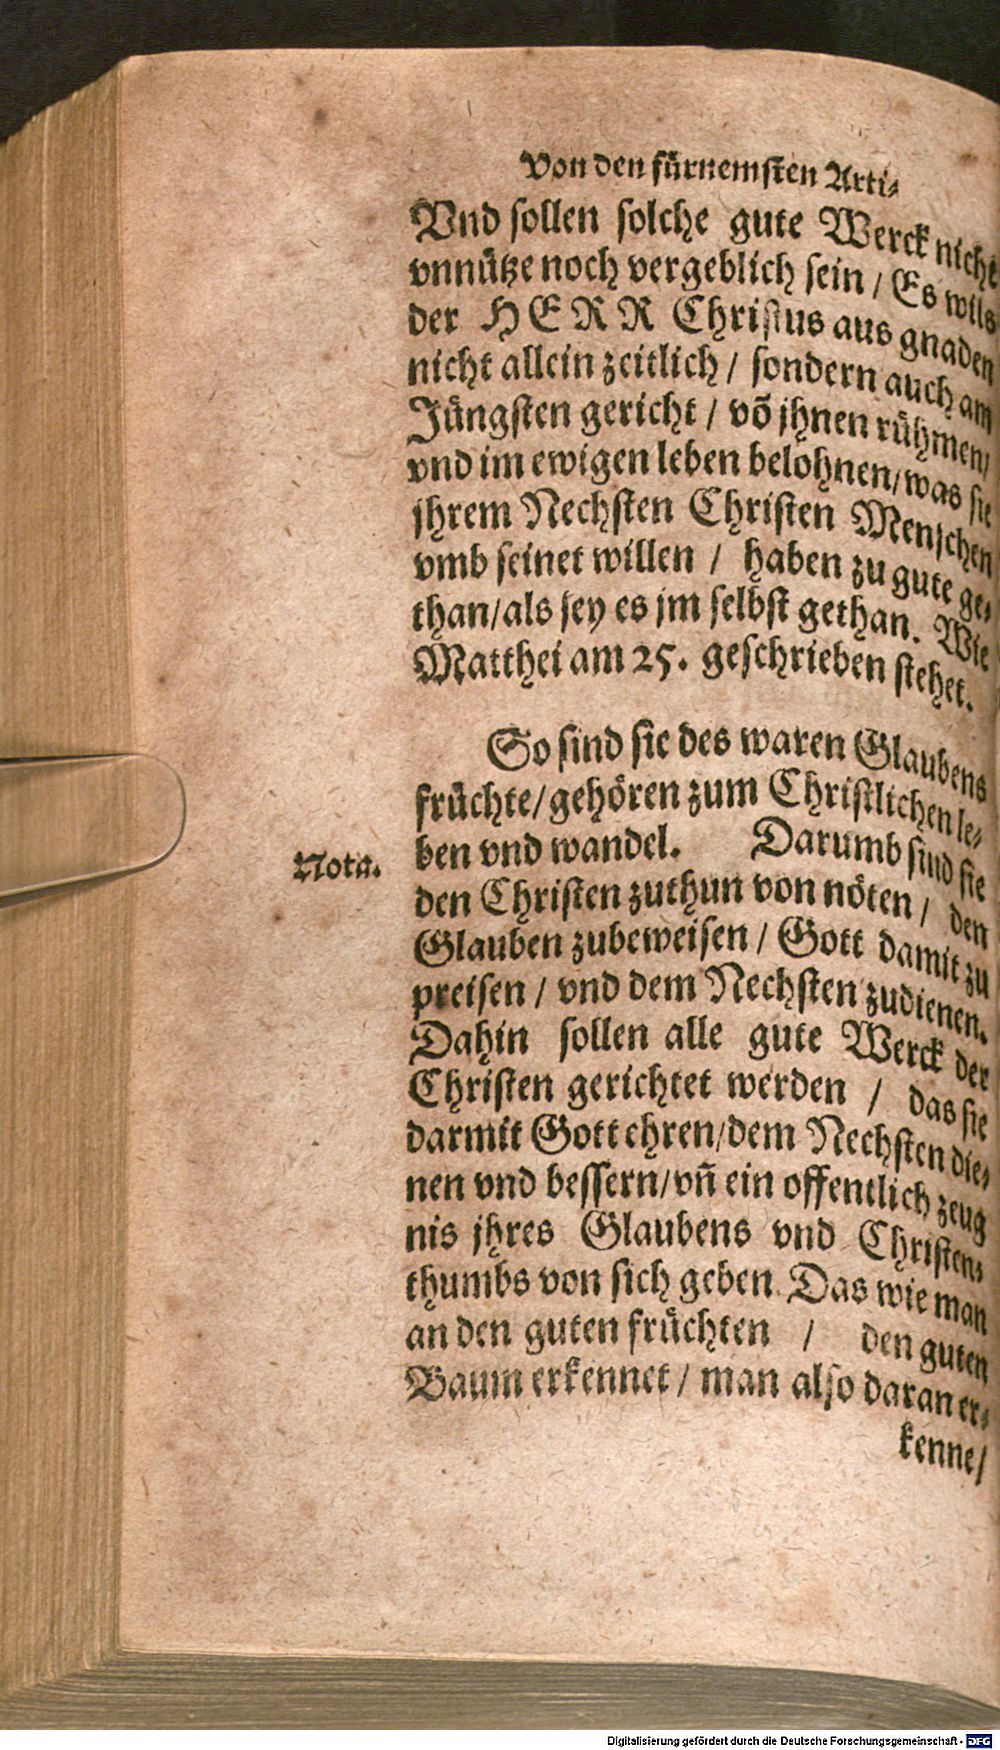 Von den fürnemsten Arti-
Vnd sollen solche gute Werck nicht
vnnütze noch vergeblich sein / Es wils
der HERR Christus aus gnaden
nicht allein zeitlich / sondern auch am
Jüngsten gericht / võ jhnen rühmen /
vnd im ewigen leben belohnen / was sie
jhrem Nechsten Christen Menschen
vmb seinet willen / haben zu gute ge-
than / als sey es jm selbst gethan. Wie
Matthei am 25. geschrieben stehet.
So sind sie des waren Glaubens
früchte / gehören zum Christlichen le-
ben vnd wandel. Darumb sind sie
Nota.
den Christen zuthun von nöten / den
Glauben zubeweisen / Gott damit zu
preisen / vnd dem Nechsten zudienen.
Dahin sollen alle gute Werck der
Christen gerichtet werden / das sie
darmit Gott ehren / dem Nechsten die-
nen vnd bessern / vñ ein offentlich zeug
nis jhres Glaubens vnd Christen-
thumbs von sich geben. Das wie man
an den guten früchten / den guten
Baum erkennet / man also daran er-
kenne /
Digitalisierung gefördert durch die Deutsche Forschungsgemeinschaft - DFG